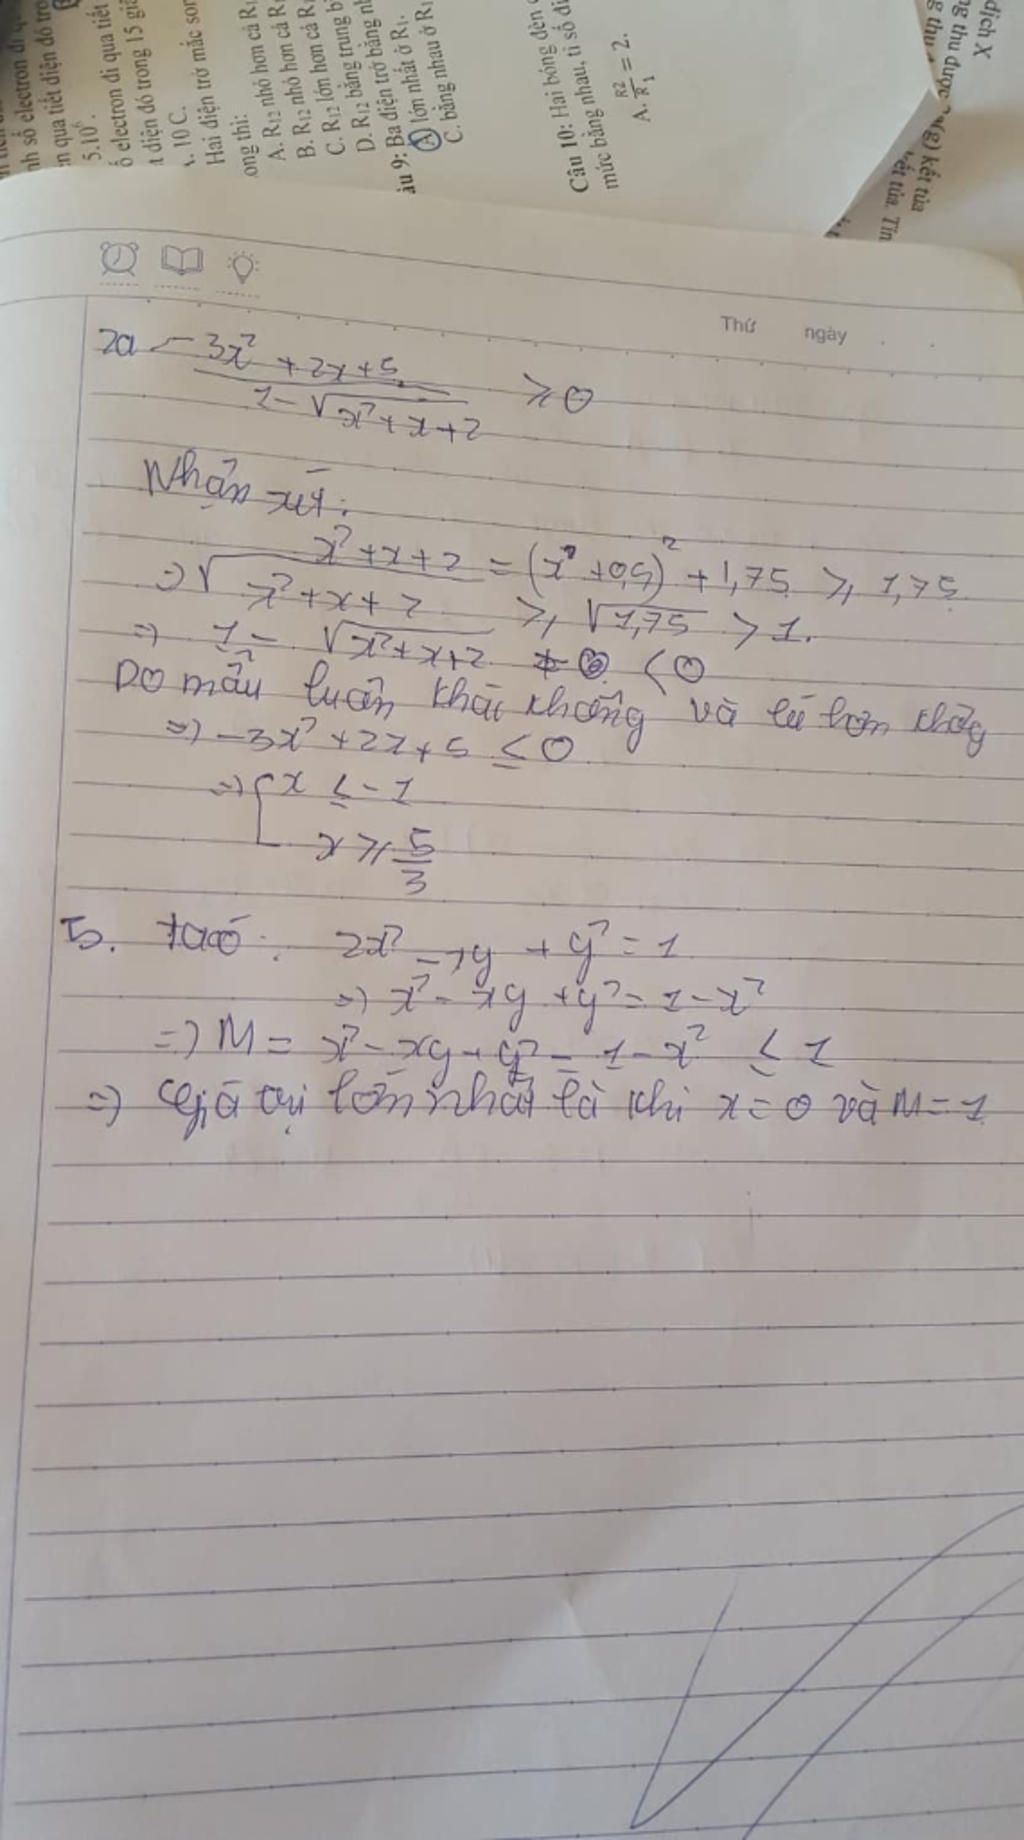 nh số electron đi q
n qua tiết diện đó tro
5.10⁶.
ố electron đi qua tiết
t diện đó trong 15 giâ
A. 10 C.
Hai điện trở mắc son
ong thì:
A. R₁₂ nhỏ hơn cả R₁
B. R₁₂ nhỏ hơn cả R
C. R₁₂ lớn hơn cả R
D. R₁₂ bằng trung b
âu 9: Ba điện trở bằng nh
A lớn nhất ở R₁.
C. bằng nhau ở R₁
Câu 10: Hai bóng đèn
mức bằng nhau, tỉ số đi
A. R2/R1 = 2.
dịch X
ng thu được
(g) kết tủa
kết tủa. Tín
Thứ ngày
2a -3x² + 2x + 5 / 1 - √x² + x + 2 ≥ 0
Nhận xét:
x² + x + 2 = (x + 0,5)² + 1,75 ≥ 1,75
⇒ √x² + x + 2 ≥ √1,75 > 1.
⇒ 1 - √x² + x + 2 < 0
Do mẫu luôn khác không và bé hơn không
⇒ -3x² + 2x + 5 ≤ 0
⇒ [ x ≤ -1
x ≥ 5/3
5. ta có: 2x² - xy + y² = 1
⇒ x² - xy + y² = 1 - x²
⇒ M = x² - xy + y² = 1 - x² ≤ 1
⇒ Giá trị lớn nhất là khi x = 0 và M = 1